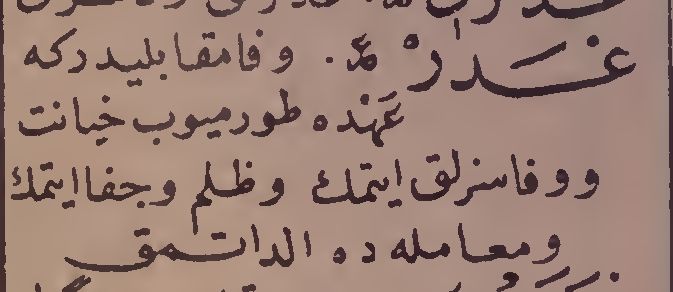 غدار ع. وفا مقابليدركه
عهنده طورميوب خيانت
ووفاسزلق ايتمك وظلم وجفا ايتمك
ومعامله ده الداتمق